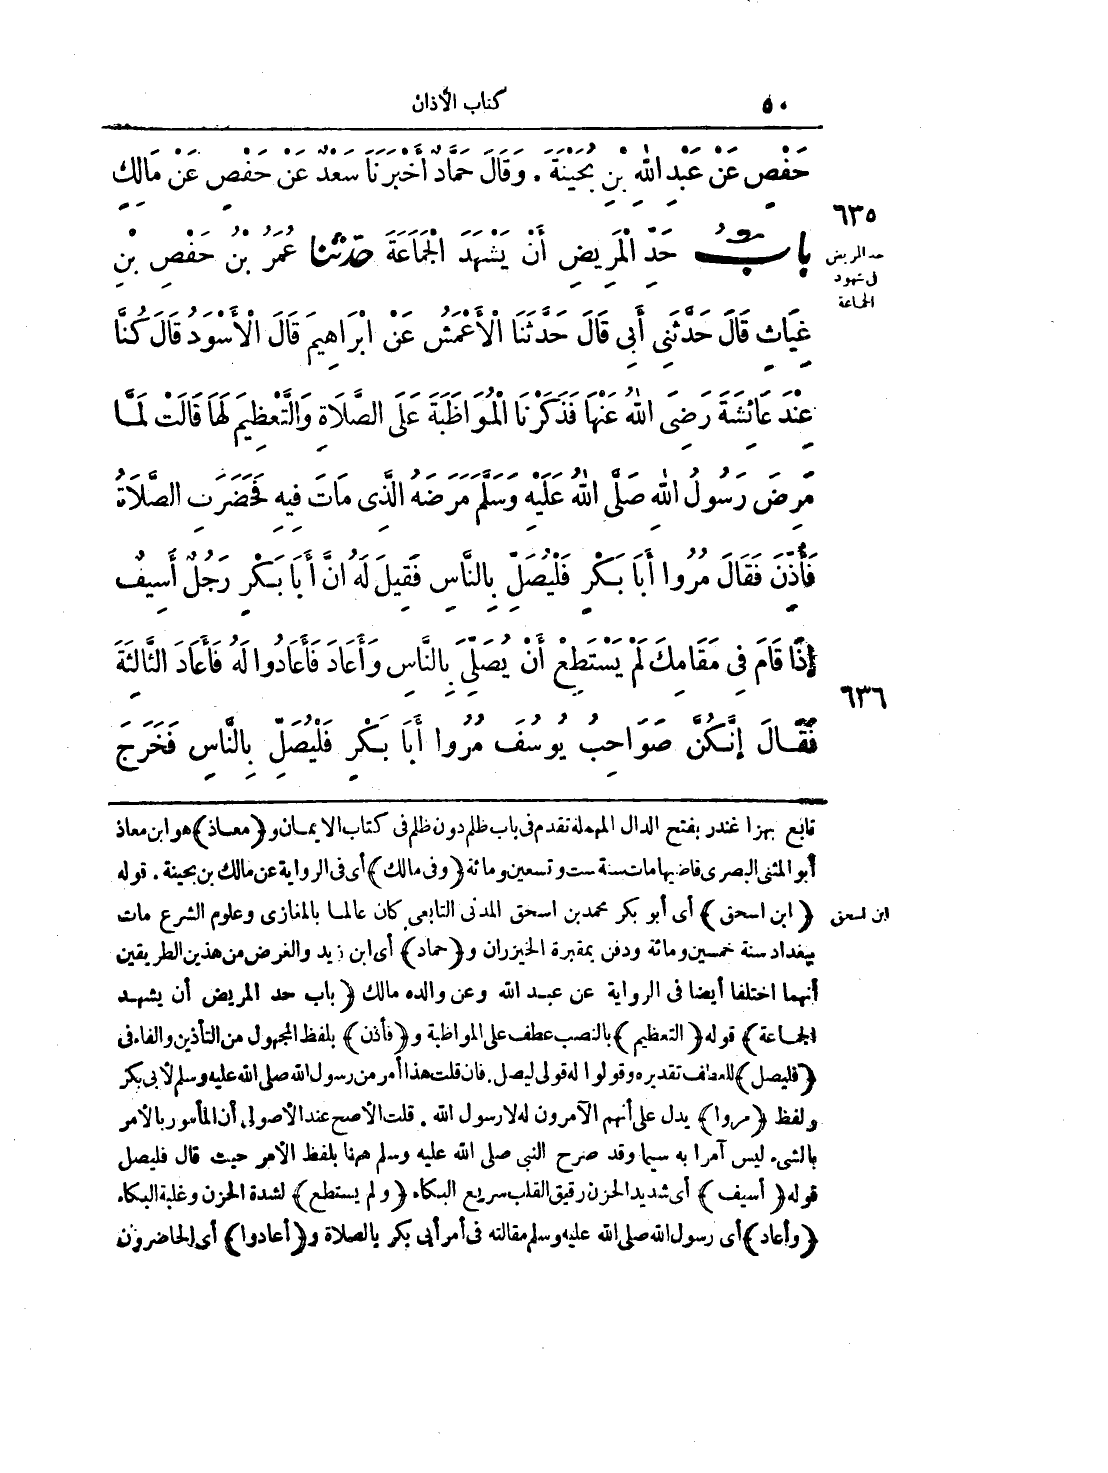 ٥٠
كتاب الأذان
حَفْصٍ عَنْ عَبْدِ اللهِ بْنِ بُحَيْنَةَ . وَقَالَ حَمَّادٌ أَخْبَرَنَا سَعْدٌ عَنْ حَفْصٍ عَنْ مَالِكٍ
٦٣٥
حد المريض
فى شهود
الجماعة
بابُ حَدِّ الْمَرِيضِ أَنْ يَشْهَدَ الْجَمَاعَةَ حَدّثنا عُمَرُ بْنُ حَفْصِ بْنِ
غِيَاثٍ قَالَ حَدَّثَنِى أَبِى قَالَ حَدَّثَنَا الْأَعْمَشُ عَنْ ابْرَاهِيمَ قَالَ الْأَسْوَدُ قَالَ كُنَّا
عِنْدَ عَائِشَةَ رَضِىَ اللهُ عَنْهَا فَذَكَرْنَا الْمُوَاظَبَةَ عَلَى الصَّلَاةِ وَالتَّعْظِيمَ لَهَا قَالَتْ لَمَّا
مَرِضَ رَسُولُ اللهِ صَلَّى اللهُ عَلَيْهِ وَسَلَّمَ مَرَضَهُ الَّذِى مَاتَ فِيهِ فَحَضَرَتِ الصَّلَاةُ
فَأُذِّنَ فَقَالَ مُرُوا أَبَا بَكْرٍ فَلْيُصَلِّ بِالنَّاسِ فَقِيلَ لَهُ انَّ أَبَا بَكْرٍ رَجُلٌ أَسِيفٌ
إِذَا قَامَ فِى مَقَامِكَ لَمْ يَسْتَطِعْ أَنْ يُصَلِّىَ بِالنَّاسِ وَأَعَادَ فَأَعَادُوا لَهُ فَأَعَادَ الثَّالِثَةَ
٦٣٦
فَقَالَ إِنَّكُنَّ صَوَاحِبُ يُوسُفَ مُرُوا أَبَا بَكْرٍ فَلْيُصَلِّ بِالنَّاسِ فَخَرَجَ
قابع بهزا غندر بفتح الدال المهملة تقدم فى باب ظلم دون ظلم فى كتاب الايمان و﴿معاذ﴾ هو ابن معاذ
أبو المثنى البصرى قاضيها مات سنة ست وتسعين ومائة ﴿وفى مالك﴾ أى فى الرواية عن مالك بن بحينة . قوله
﴿ابن اسحق﴾ أى أبو بكر محمد بن اسحق المدنى التابعى كان عالما بالمغازى وعلوم الشرع مات
ابن اسحق
ببغداد سنة خمسين ومائة ودفن بمقبرة الخيزران و﴿حماد﴾ أى ابن زيد والغرض من هذين الطريقين
أنهما اختلفا أيضا فى الرواية عن عبد الله وعن والده مالك ﴿باب حد المريض أن يشهد
الجماعة﴾ قوله ﴿التعظيم﴾ بالنصب عطف على المواظبة و﴿فأذن﴾ بلفظ المجهول من التأذين والفاء فى
﴿فليصل﴾ للعطف تقديره وقولوا له قولى ليصل . فان قلت هذا أمر من رسول الله صلى الله عليه وسلم لأبى بكر
ولفظ ﴿مروا﴾ يدل على أنهم الآمرون له لا رسول الله . قلت الأصح عند الأصولى أن المأمور بالأمر
بالشىء ليس آمرا به سيما وقد صرح النبى صلى الله عليه وسلم ههنا بلفظ الأمر حيث قال فليصل
قوله ﴿أسيف﴾ أى شديد الحزن رقيق القلب سريع البكاء ﴿ولم يستطع﴾ لشدة الحزن وغلبة البكاء
﴿وأعاد﴾ أى رسول الله صلى الله عليه وسلم مقالته فى أمر أبى بكر بالصلاة و﴿أعادوا﴾ أى الحاضرون